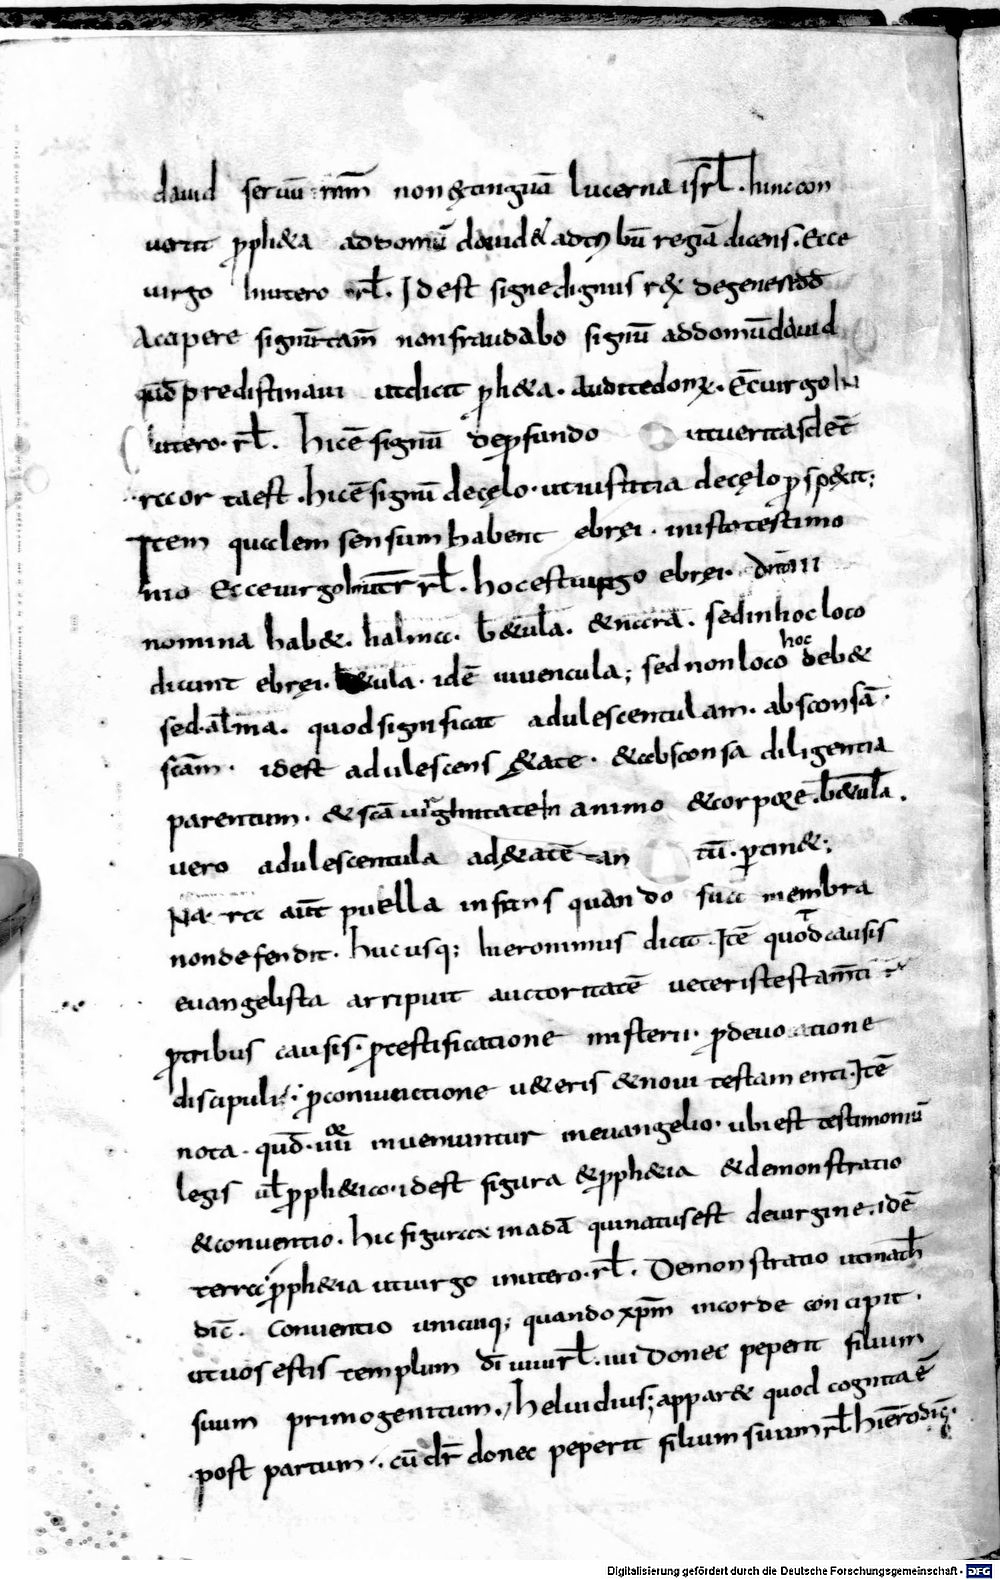 dauid seruū mm̄ non &tinguā lucerna isrl̄. hunc con
uertit p̱ph&a ad domū dauid & ad tribū regiā dicens. Ecce
uirgo in utero rl̄. Idest signe dignus rex degeneredd̄
Accipere signū tam̄ non fraudabo signū ad domū dauid
qđ predistinaui ut dicit p̱h&a. Audite dom. Ecce uirgo in
utero. rl̄. hic ē signū de p̱fundo ut ueritas de t̄
ra orta est. hic ē signū de cęlo. ut iustitia de cęlo p̱sp&it;
Item qualem sensum habent ebręi. in isto testimo
nio Ecce uirgo in uter rl̄. hoc est uirgo ebręi. om̄ia iii
nomina hab&. halma. b&ula. & naara. sed in hoc loco
dicunt ebręi. b&ula. idē iuuencula; sed non loco hoc deb&
sed. alma. quod significat adulescentulam. absconsā.
scām. idest adulescens &ate. & absconsa diligentia
parentum. & scā uirginitate in animo & corpore. b&ula.
uero adulescentula ad &atē tan tū. p̱tin&;
Naara aut̄ puella infans quando sua membra
non defendit. hucusq; hieronimus dicit. Itē quot de causis
euangelista arripuit auctoritatē ueteris testam̄ti
p̱ tribus causis. p̱ testificatione misterii. p̱ deuocatione
discipuli. p̱ coniunctione u&eris & noui testamenti. Itē
nota. quđ. uū inueniuntur in euangelio. ubi est testimoniū
legis ul̄ p̱ph&ico. idest figura & p̱ph&ia & demonstratio
& conuentio. hic figura in adā qui natus est de uirgine. idē
terra p̱ph&ia ut uirgo in utero. rl̄. Demonstratio ut math̄
dic̄. Conuentio unicuiq; quando xp̄m in corde concipit.
ut uos estis templum dī uiui rl̄. donec peperit filium
suum primogenitum. heluidius; appar& quod cognita ē
post partum. cū dr̄ donec peperit filium suum rl̄. hiero dic̄.
Digitalisierung gefördert durch die Deutsche Forschungsgemeinschaft - DFG